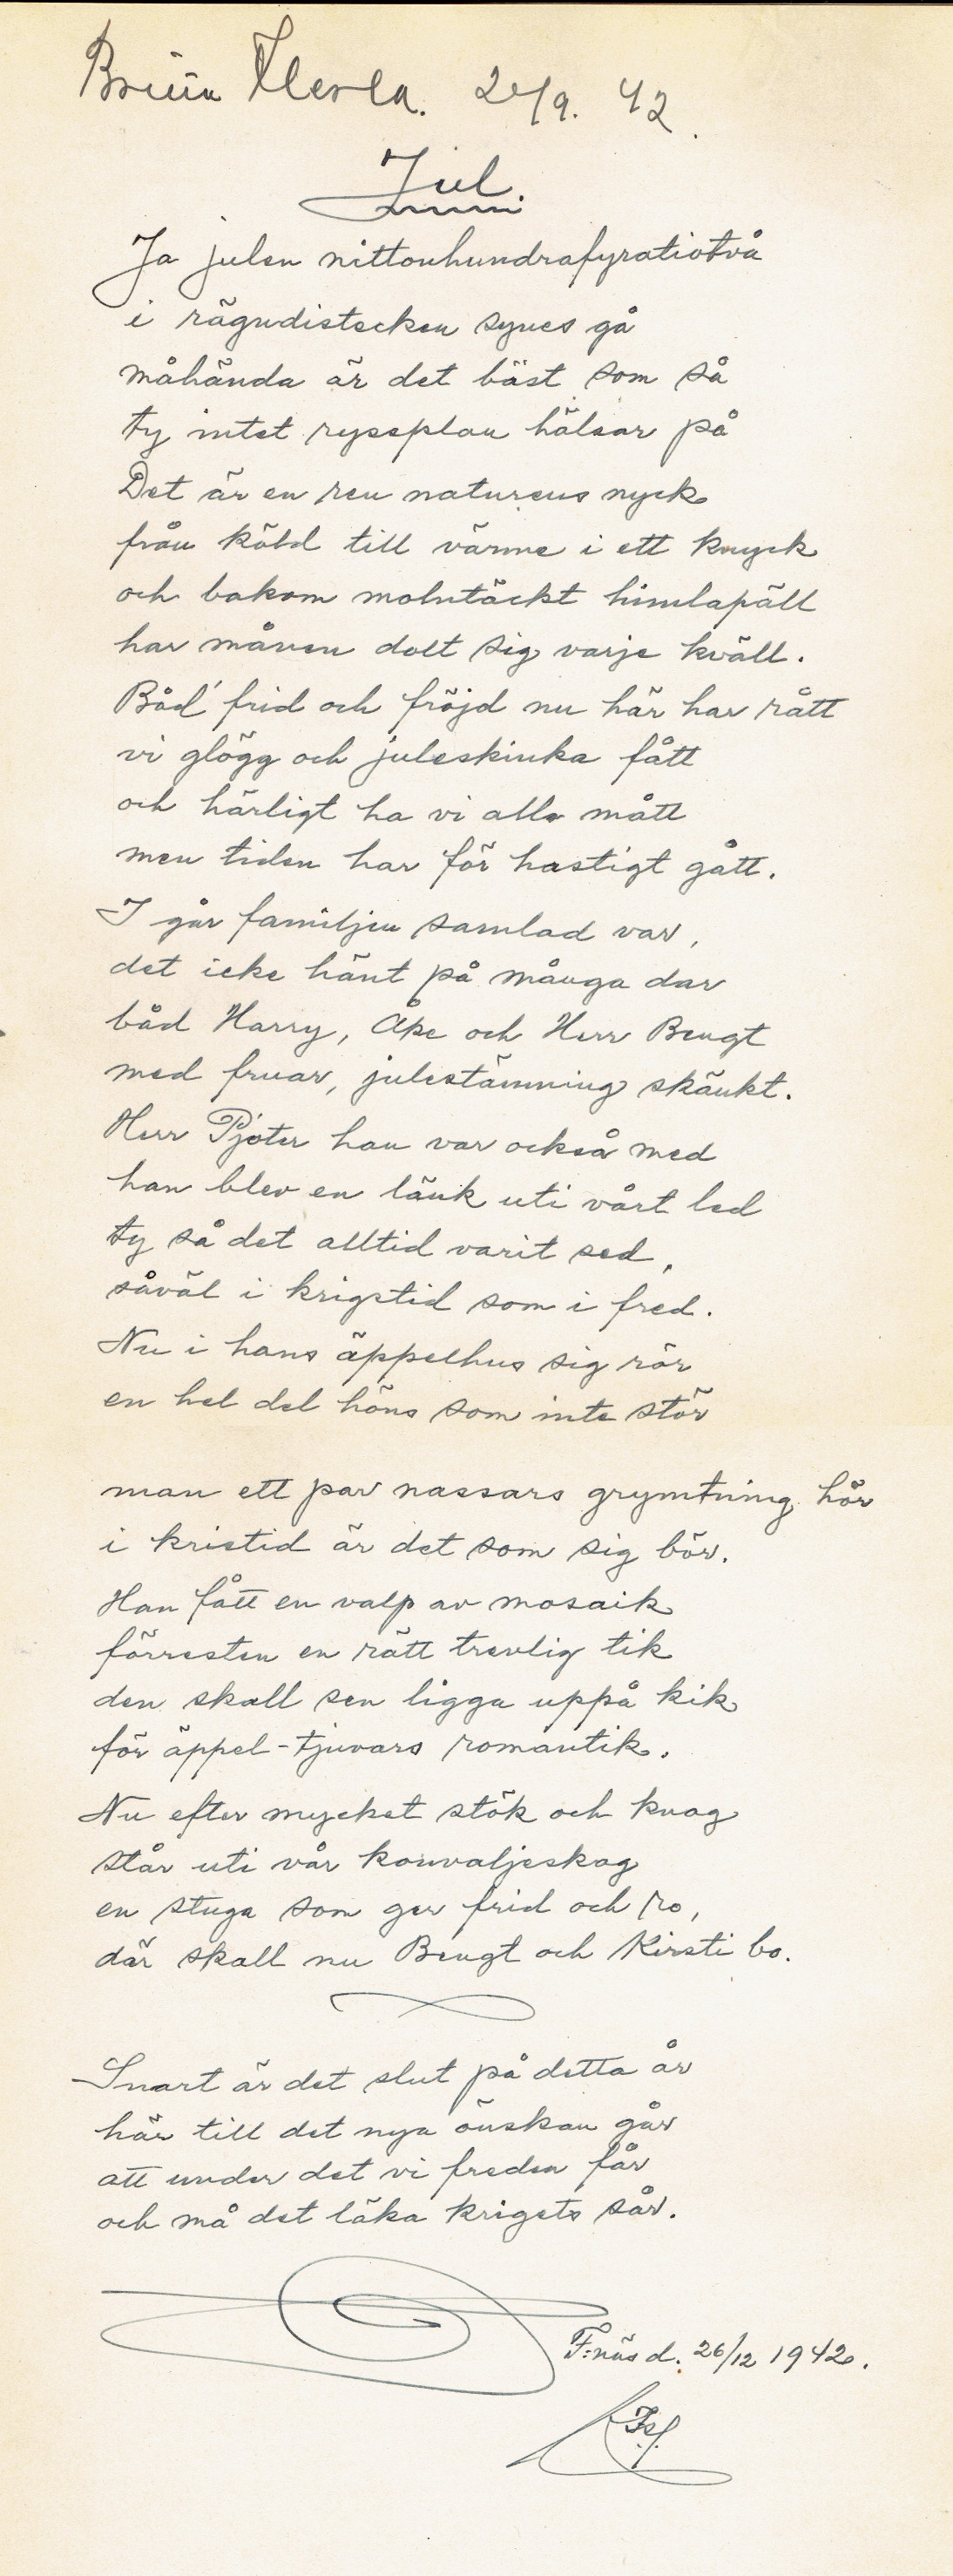 20/9. 42.
Jul.
Ja julen nittonhundrafyratiotvå
i rägndistecken synes gå
måhända är det bäst som så
ty intet ryssplan hälsar på
Det är en ren naturens nyck
från köld till värme i ett knyck
och bakom molntäckt himlapäll
har månen dolt sig varje kväll.
Båd' frid och fröjd nu här har rått
vi glögg och juleskinka fått
och härligt ha vi alla mått
men tiden har för hastigt gått.
I går familjen samlad var,
det icke hänt på många dar
båd Harry, Åke och Herr Bengt
med fruar, julestämning skänkt.
Herr Pjoter han var också med
han blev en länk uti vårt led
ty så det alltid varit sed,
såväl i krigstid som i fred.
Nu i hans äppelhus sig rör
en hel del höns som inte stör
man ett par nassars grymtning hör
i kristid är det som sig bör.
Han fått en valp av mosaik
förresten en rätt trevlig tik
den skall sen ligga uppå kik
för äppel-tjuvars romantik.
Nu efter mycket stök och knog
står uti vår konvaljeskog
en stuga som ger frid och ro,
där skall nu Bengt och Kirsti bo.
Snart är det slut på detta år
här till det nya önskan går
att under det vi freden får
och må det läka krigets sår.
F:näs d. 26/12 1942.